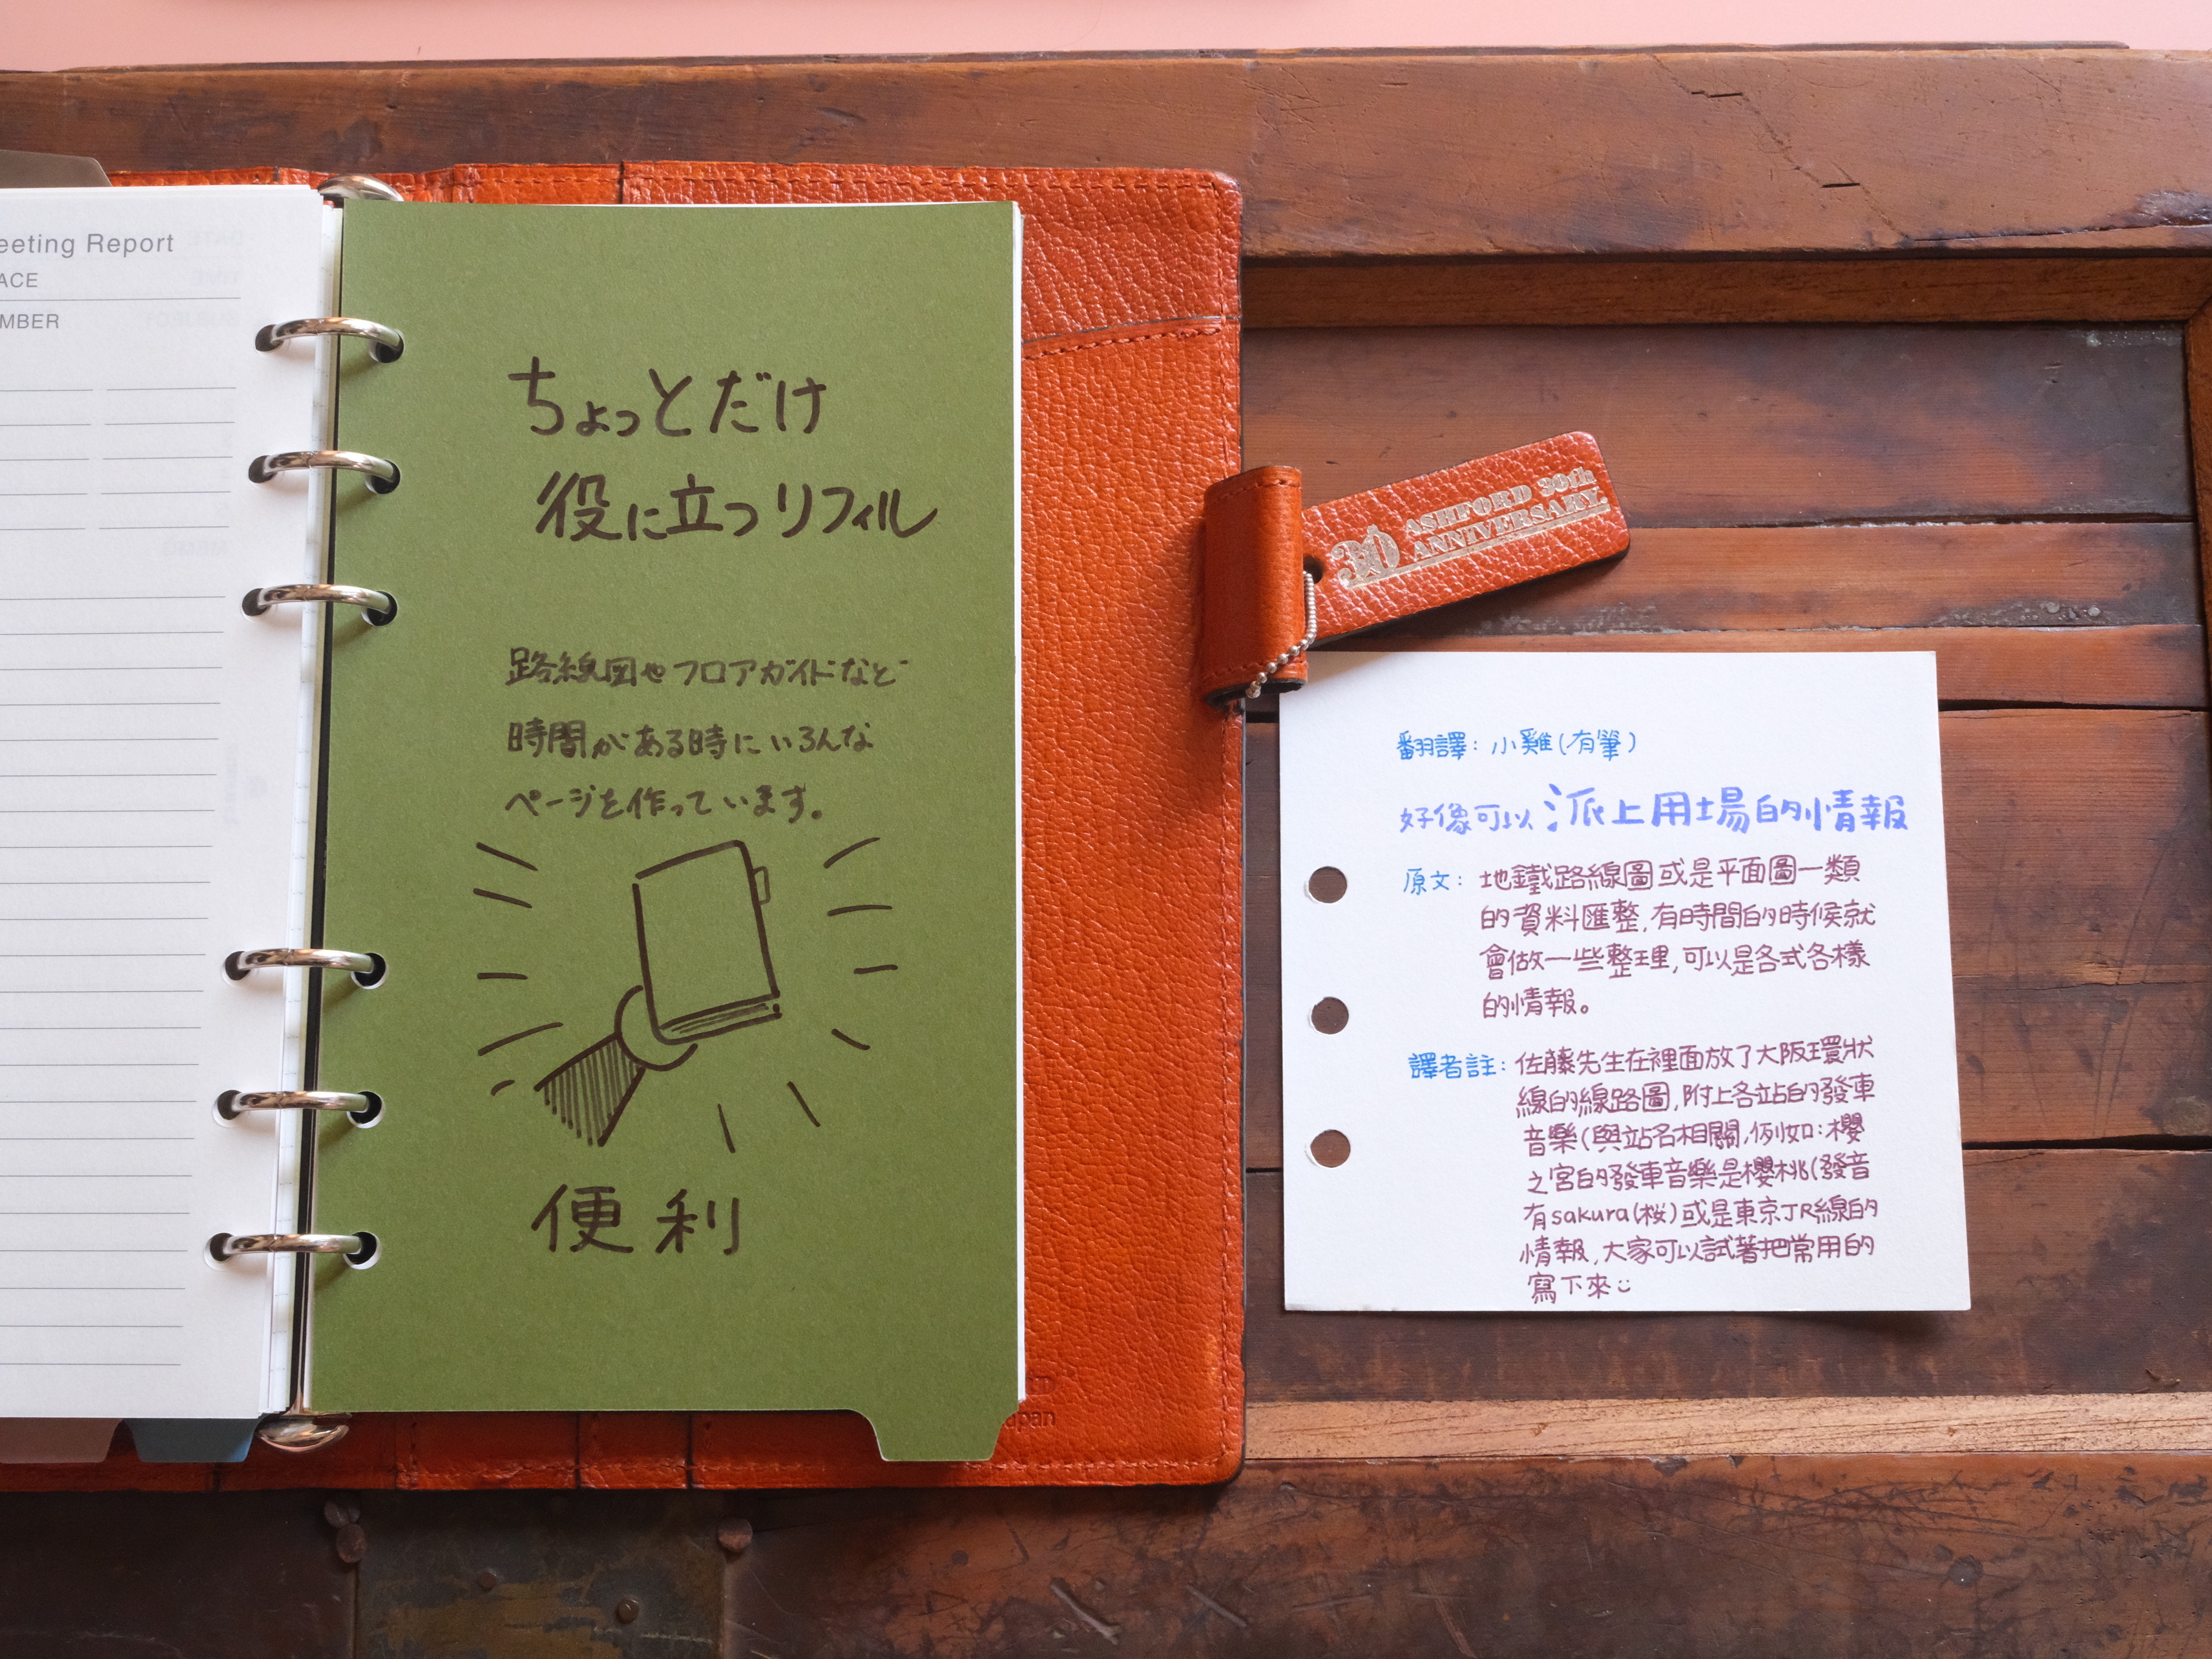 eeting Report
ACE
MBER
ちょっとだけ
役に立つリフィル
路線図やフロアガイドなど
時間がある時にいろんな
ページを作っています。
便利
30 ASHFORD 30th
ANNIVERSARY.
翻譯：小雞(有筆)
好像可以派上用場的情報
原文：地鐵路線圖或是平面圖一類
的資料匯整,有時間的時候就
會做一些整理,可以是各式各樣
的情報。
譯者註：佐藤先生在裡面放了大阪環狀
線的線路圖,附上各站的發車
音樂(與站名相關,例如:櫻
之宮的發車音樂是櫻桃(發音
有sakura(桜)或是東京JR線的
情報,大家可以試著把常用的
寫下來